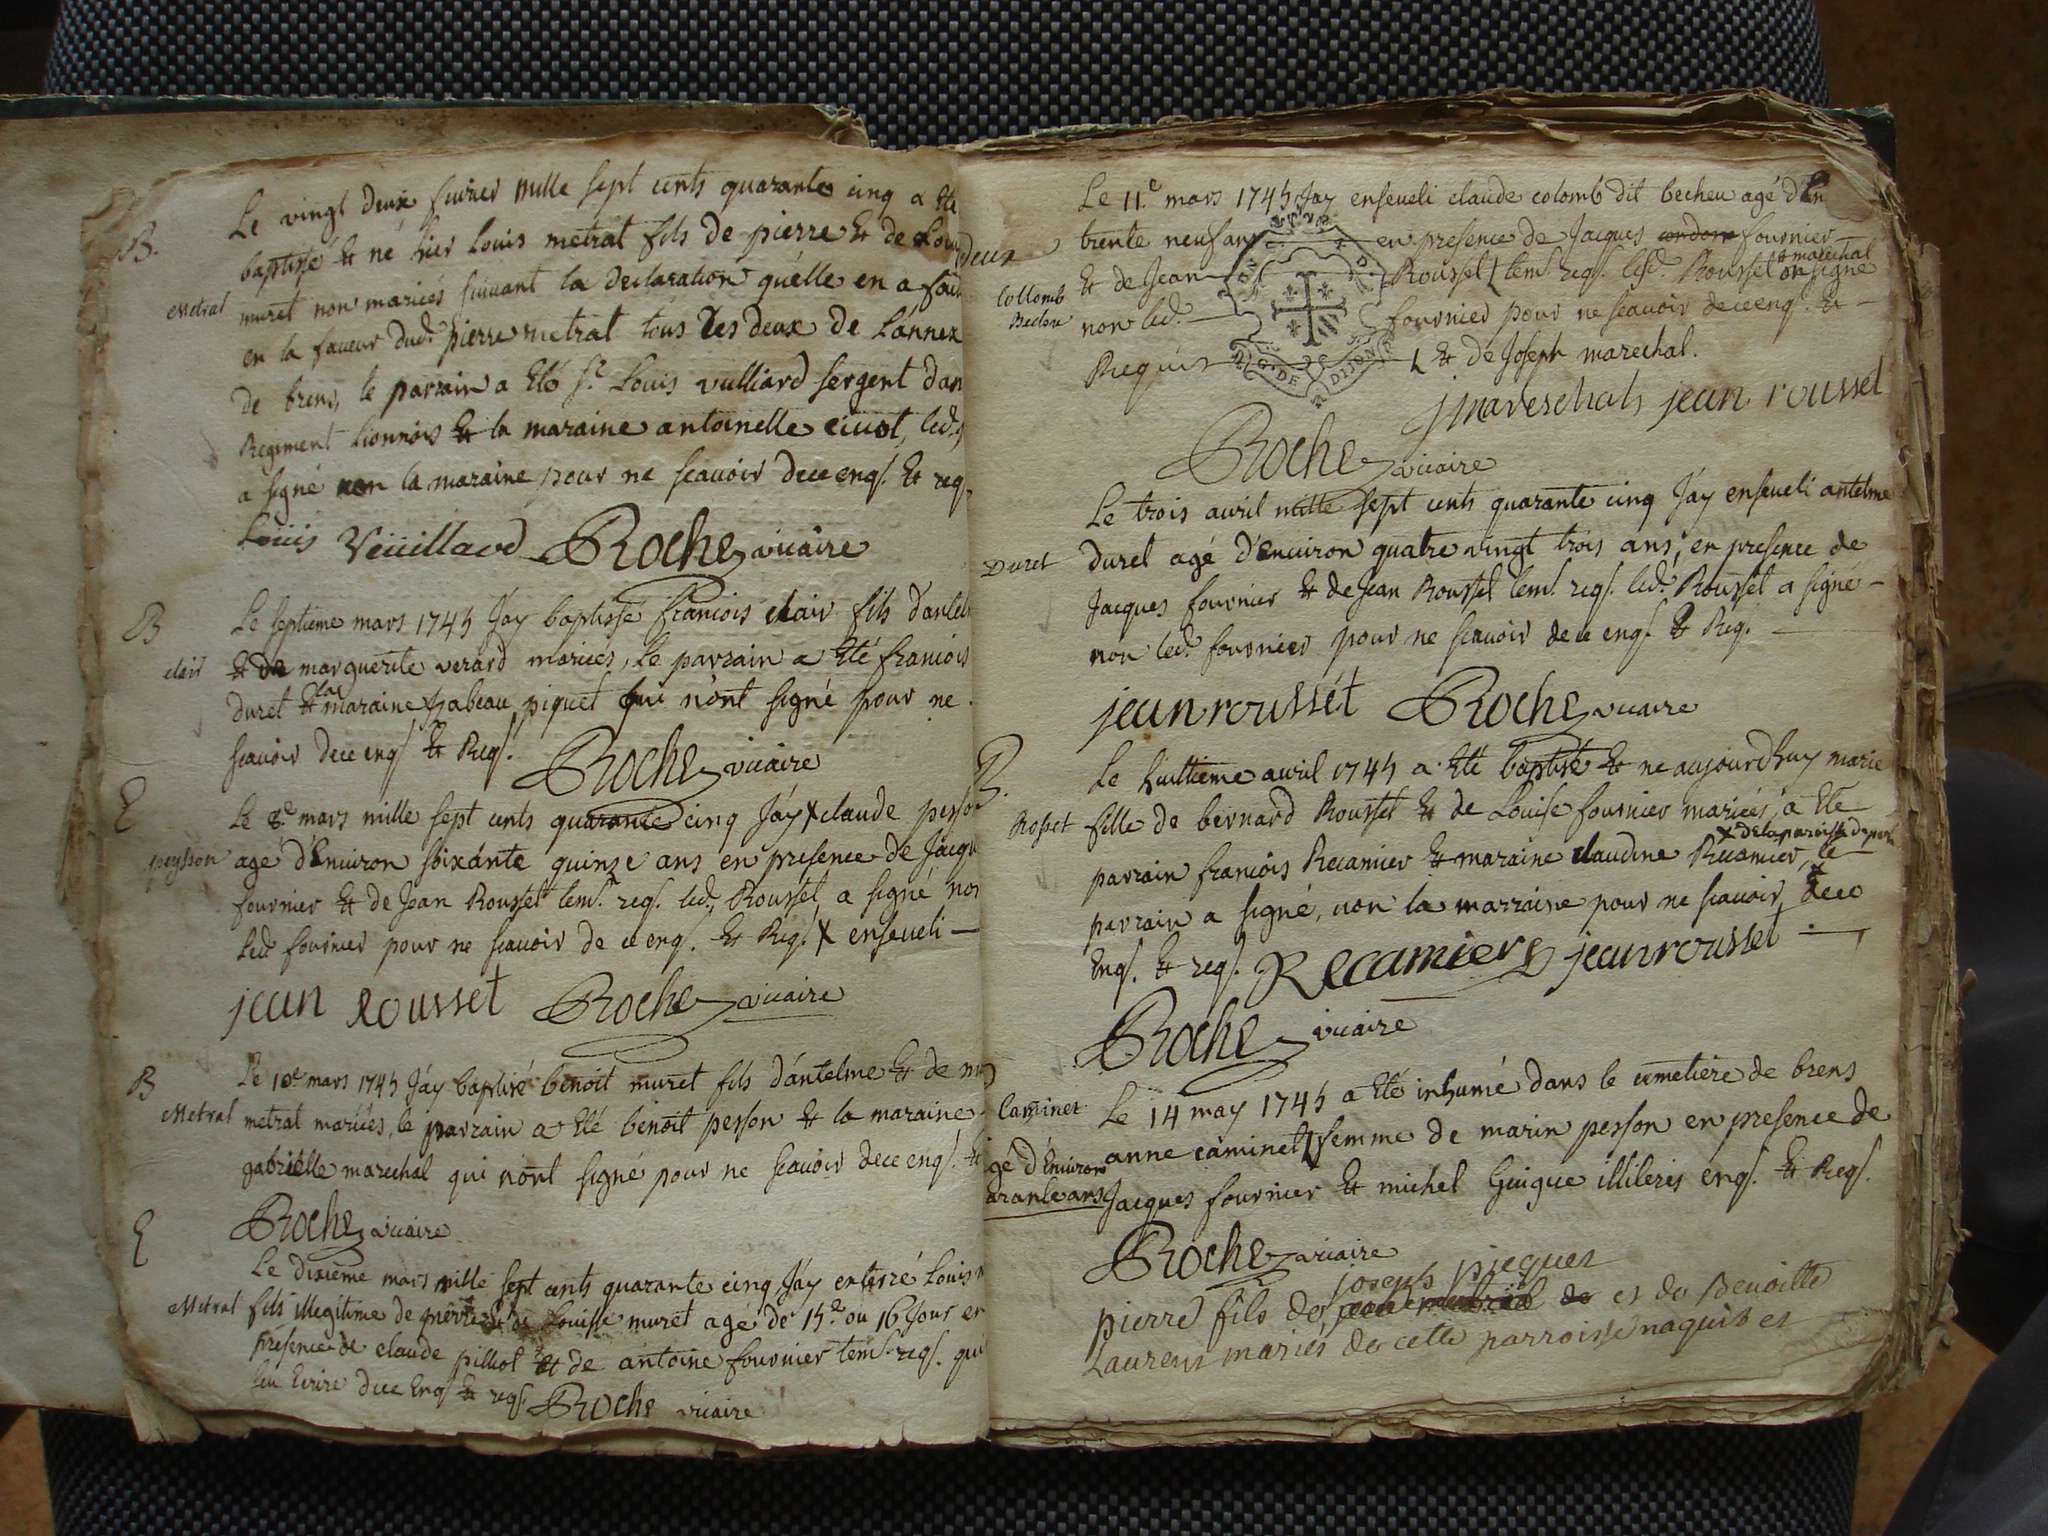 B.
Le vingt deux fevrier mille sept cents quarante cinq a été
baptisé et né hier Louis metrat fils de pierre et de Loui
Metral
muret non mariées suivant la declaration qu'elle en a fai
en la faveur dud. pierre metrat tous les deux de L'annex
de brens, le parrain a été sr. Louis vulliard sergent dan
Regiment Lionnois et la maraine antoinette civot, led.
a signé non la maraine pour ne scavoir de ce enq. et req.
Louis Veüillard Roche vicaire
B
Le septieme mars 1745 J'ay baptissé francois clair fils d'antel
clair
et de marguerite verard mariées, le parrain a été francois
duret et la maraine yzabeau piquet qui n'ont signé pour ne
scavoir de ce enq. et Req.
Roche vicaire
E
Le 8e mars mille sept cents quarante cinq J'ay X claude person
peysson
agé d'Environ soixante quinze ans en presence de Jacqu
fournier et de Jean Rousset tem. req. led. Rousset a signé non
led. fournier pour ne scavoir de ce enq. et Req. X enseveli —
jean rousset Roche vicaire
B
Le 10e mars 1745 J'ay baptisé benoit muret fils d'antelme et de
Metral
metrat mariées, le parrain a été benoit person et la maraine
gabrielle marechal qui n'ont signé pour ne scavoir de ce enq. et
Roche vicaire
E
Le dixieme mars mille sept cents quarante cinq J'ay enterré Louis
Metral
fils illegitime de pierre et de Louise muret agé de 15e ou 16 Jour en
presence de claude pilliot et de antoine fournier tem. req. qui
scu Ecrire de ce Enq. et req. Roche vicaire
Le 11e mars 1745 J'ay enseveli claude colomb dit becheu agé d'En
trente neuf ans en presence de Jacques fournier
Collomb
et de Jean Rousset L tem. req. led. Rousset et marechal on signé
non led. fournier pour ne scavoir de ce enq. et
Requis L et de Joseph marechal.
DIJON
j mareschal jean rousset
Roche vicaire
Le trois avril mille sept cents quarante cinq J'ay enseveli antelme
Duret
duret agé d'Environ quatre vingt trois ans, en presence de
Jacques fournier et de Jean Rousset tem. req. led. Rousset a signé —
non led. fournier pour ne scavoir de ce enq. et Req. —
jean rousset Roche vicaire
B.
Le huittieme avril 1745 a été baptisé et ne aujourd'huy marie
Rosset
fille de bernard Rousset et de Louise fournier mariées, a été
X de la paroisse de
parrain francois Recamier et maraine claudine Recamier, le
parrain a signé, non la marraine pour ne scavoir de ce
Enq. et req. Recamier jean rousset
Roche vicaire
Caminet
Le 14 may 1745 a été inhumé dans le cimetiere de brens
anne caminet L femme de marin person en presence de
agé d'Environ
arante ans
Jacques fournier et michel Guigue illiteris enq. et Req.
Roche vicaire
joseph picquet
pierre fils de et de Benoitte
Laurent mariés de cette parroisse naquit et